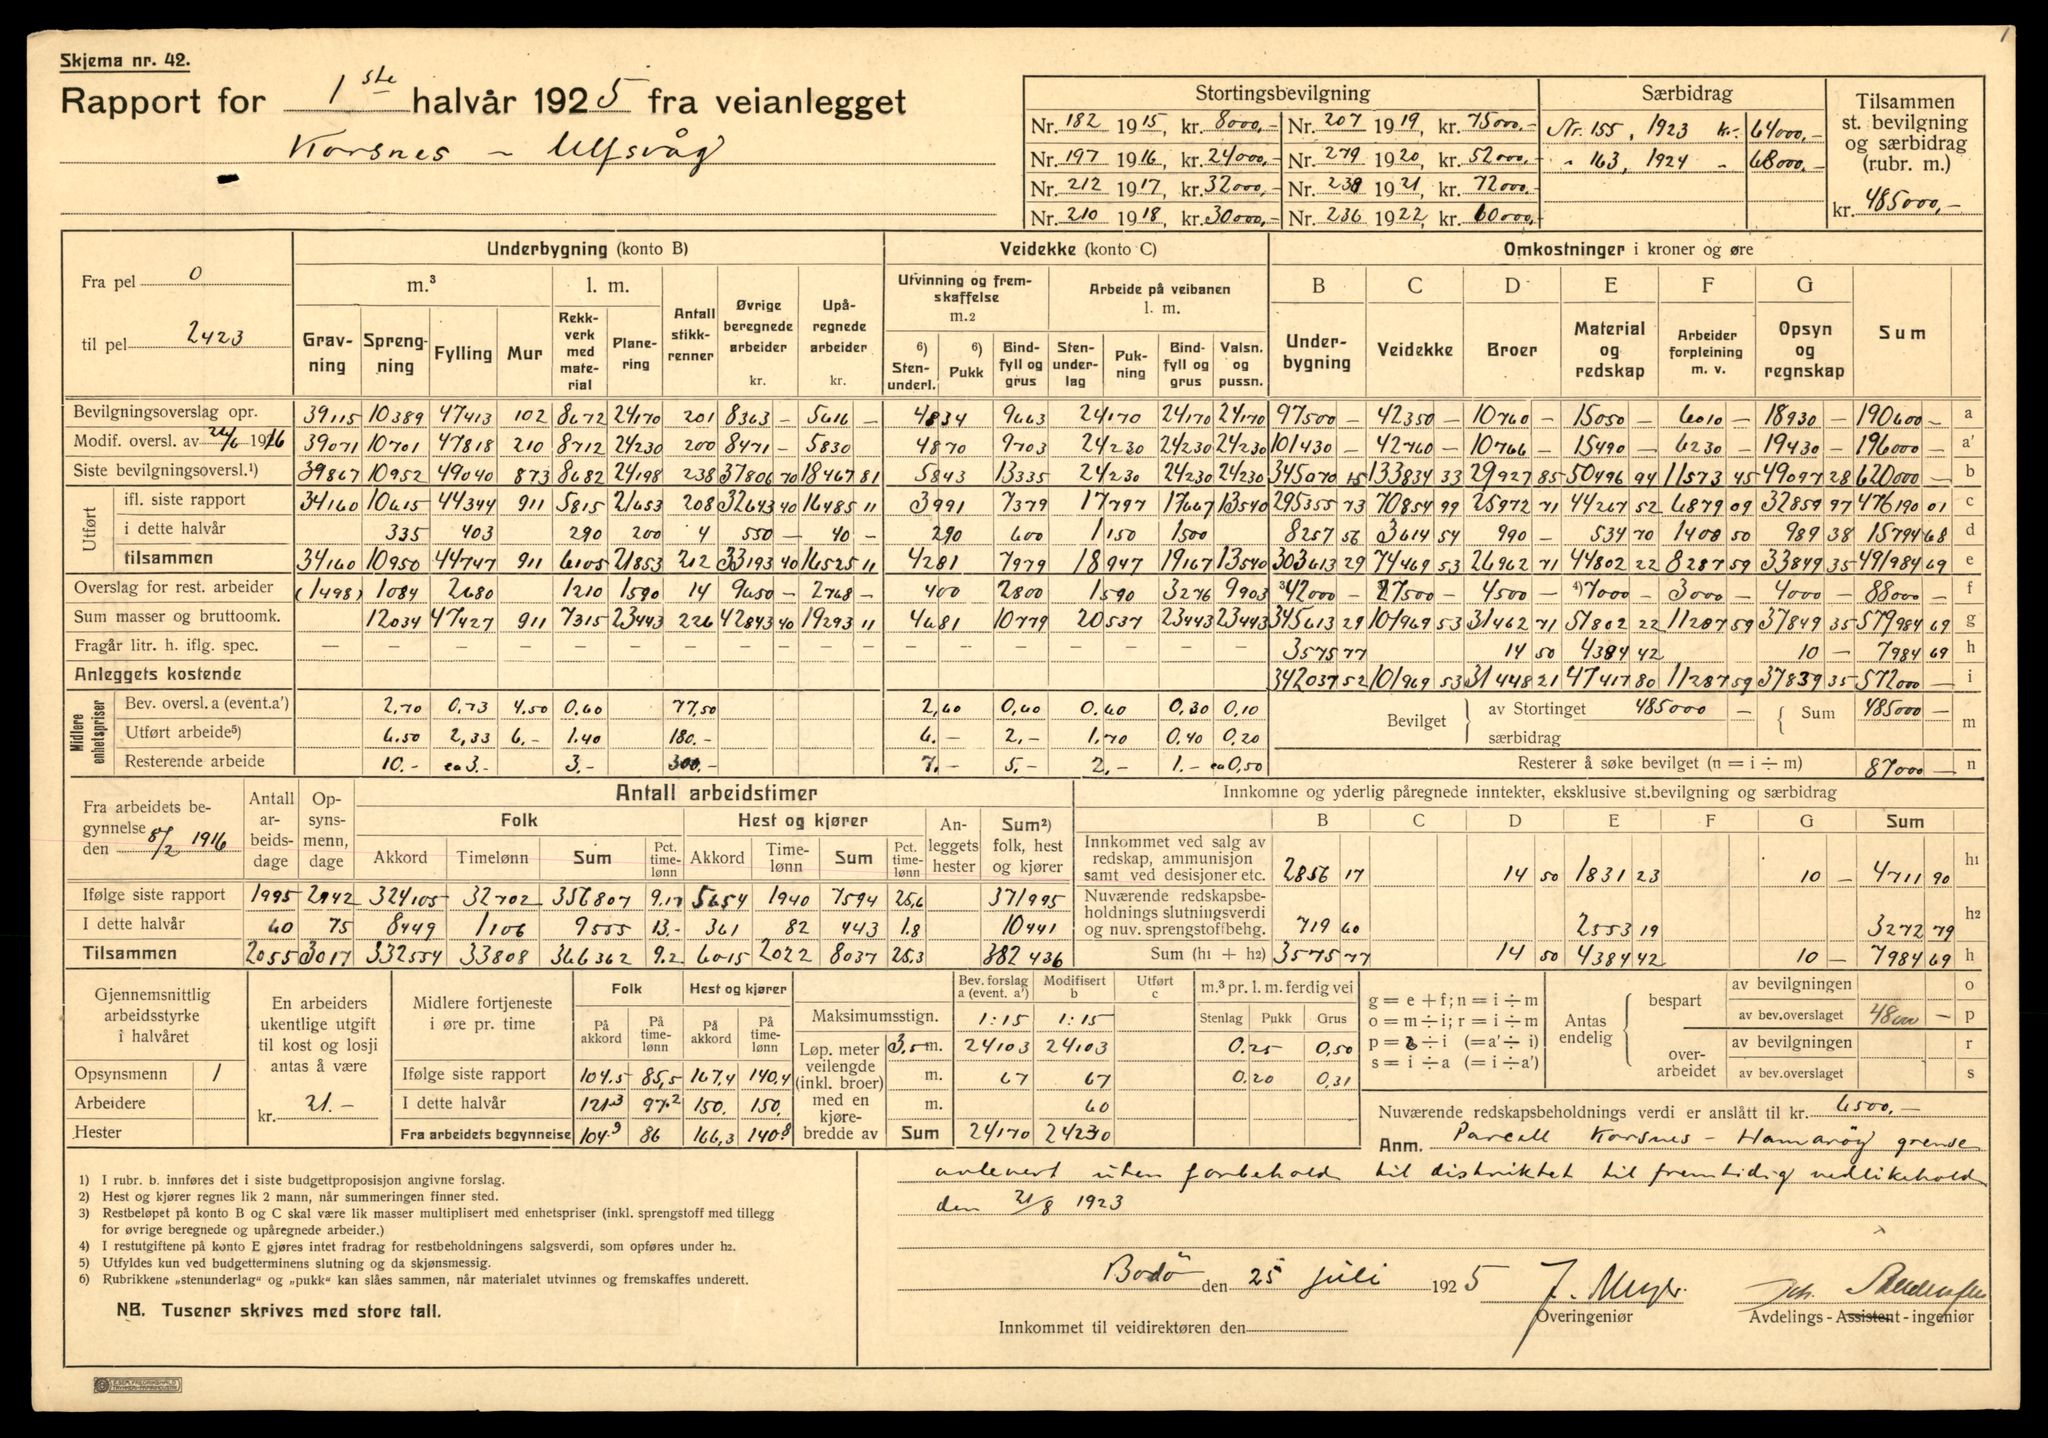 1
Skjema nr. 42.
Rapport for 1ste halvår 1925 fra veianlegget
Korsnes – Ulfsvåg
Stortingsbevilgning
Nr. 182 1915, kr. 8000,- Nr. 207 1919, kr. 75000.-
Nr. 197 1916, kr. 24000,- Nr. 279 1920, kr. 52000,-
Nr. 212 1917, kr. 32000,- Nr. 238 1921, kr. 72000.-
Nr. 210 1918, kr. 30000,- Nr. 236 1922, kr. 60000,-
Særbidrag
Nr. 155, 1923 kr. 64000,-
" 163, 1924 - 68000,-
Tilsammen
st. bevilgning
og særbidrag
(rubr. m.)
kr. 485000,-
Fra pel 0
til pel 2423
Underbygning (konto B)
m.³ l. m.
Gravning Sprengning Fylling Mur Rekkverk med materiale Planering Antall stikkrenner Øvrige beregnede arbeider kr. Upåregnede arbeider kr.
Veidekke (konto C)
Utvinning og fremskaffelse m.2 Arbeide på veibanen l. m.
6) Stenunderl. 6) Pukk Bindfyll og grus Stenunderlag Pukning Bindfyll og grus Valsn. og pussn.
Omkostninger i kroner og øre
B C D E F G
Underbygning Veidekke Broer Material og redskap Arbeider forpleining m. v. Opsyn og regnskap Sum
Bevilgningsoverslag opr. 39115 10389 47413 102 8672 24170 201 8363 - 5616 - 4834 9663 24170 24170 24170 97500 - 42350 - 10760 - 15050 - 6010 - 18930 - 190600 - a
Modif. oversl. av 24/6 1916 39071 10701 47818 210 8712 24230 200 8471 - 5830 4870 9703 24230 24230 24230 101430 - 42760 - 10766 - 15490 - 6230 - 19430 - 196000 - a'
Siste bevilgningsoversl.¹) 39867 10952 49040 873 8682 24198 238 37806 70 18467 81 5843 13335 24230 24230 24230 345070 15 133834 33 29927 85 50496 94 11573 45 49097 28 620000 - b
Utført
ifl. siste rapport 34160 10615 44344 911 5815 21653 208 32643 40 16485 11 3991 7379 17797 17667 13540 295355 73 70854 99 25972 71 44267 52 6879 09 32859 97 476190 01 c
i dette halvår 335 403 290 200 4 550 - 40 - 290 600 1150 1500 8257 56 3614 54 990 - 534 70 1408 50 989 38 15794 68 d
tilsammen 34160 10950 44747 911 6105 21853 212 33193 40 16525 11 4281 7979 18947 19167 13540 303613 29 74469 53 26962 71 44802 22 8287 59 33849 35 491984 69 e
Overslag for rest. arbeider (1498) 1084 2680 1210 1590 14 9650 - 2768 - 400 2800 1590 3276 9903 ³)42000 - 27500 - 4500 - ⁴)7000 - 3000 - 4000 - 88000 - f
Sum masser og bruttoomk. 12034 47427 911 7315 23443 226 42843 40 19293 11 4681 10779 20537 23443 23443 345613 29 101969 53 31462 71 51802 22 11287 59 37849 35 579984 69 g
Fragår litr. h. iflg. spec. — — — — — — — — — — — — — — 3575 77 14 50 4384 42 10 - 7984 69 h
Anleggets kostende 342037 52 101969 53 31448 21 47417 80 11287 59 37839 35 572000 - i
Midlere enhetspriser
Bev. oversl. a (event.a') 2,70 0,73 4,50 0,60 77,50 2,60 0,60 0,60 0,30 0,10
Utført arbeide⁵) 6.50 2,33 6,- 1.40 180.- 6.- 2,- 1,70 0,40 0,20
Resterende arbeide 10.- ca 3.- 3.- 300.- 7.- 5,- 2,- 1.- ca 0,50
Bevilget av Stortinget 485000 - særbidrag Sum 485000 - m
Resterer å søke bevilget (n = i ÷ m) 87000 - n
Fra arbeidets begynnelse den 8/2 1916
Antall arbeidsdage Opsynsmenn, dage
Antall arbeidstimer
Folk Hest og kjører Anleggets hester Sum²) folk, hest og kjører
Akkord Timelønn Sum Pct. timelønn Akkord Timelønn Sum Pct. timelønn
Ifølge siste rapport 1995 2942 324105 32702 356807 9.17 5654 1940 7594 25,6 371995
I dette halvår 60 75 8449 1106 9555 13.- 361 82 443 1.8 10441
Tilsammen 2055 3017 332554 33808 366362 9.2 6015 2022 8037 25.3 382436
Innkomne og yderlig påregnede inntekter, eksklusive st.bevilgning og særbidrag
B C D E F G Sum
Innkommet ved salg av redskap, ammunisjon samt ved desisjoner etc. 2856 17 14 50 1831 23 10 - 4711 90 h1
Nuværende redskapsbeholdnings slutningsverdi og nuv. sprengstoffbehg. 719 60 2553 19 3272 79 h2
Sum (h1 + h2) 3575 77 14 50 4384 42 10 - 7984 69 h
Gjennemsnittlig arbeidsstyrke i halvåret
Opsynsmenn 1
Arbeidere
Hester
En arbeiders ukentlige utgift til kost og losji antas å være
kr. 21.-
Midlere fortjeneste i øre pr. time
Folk Hest og kjører
På akkord På timelønn På akkord På timelønn
Ifølge siste rapport 104.5 85,5 167,4 140,4
I dette halvår 121.3 97.2 150. 150.
Fra arbeidets begynnelse 104.9 86 166,3 140.8
Bev. forslag a (event. a') Modifisert b Utført c
Maksimumsstign. 1:15 1:15
Løp. meter veilengde (inkl. broer) med en kjørebredde av
3,5 m. 24103 24103
m. 67 67
m. 60
Sum 24170 24230
m.³ pr. l. m. ferdig vei
Stenlag Pukk Grus
0.25 0,50
0.20 0,31
g = e + f; n = i ÷ m
o = m ÷ i; r = i ÷ m
p = b ÷ i (= a' ÷ i)
s = i ÷ a (= i ÷ a')
Antas endelig
bespart av bevilgningen o
av bev.overslaget 48000 - p
overarbeidet av bevilgningen r
av bev.overslaget s
Nuværende redskapsbeholdnings verdi er anslått til kr. 6500,-
Anm. Parcell Korsnes – Hamarøy grense
avlevert uten forbehold til distriktet til fremtidig vedlikehold
den 21/8 1923
1) I rubr. b. innføres det i siste budgettproposisjon angivne forslag.
2) Hest og kjører regnes lik 2 mann, når summeringen finner sted.
3) Restbeløpet på konto B og C skal være lik masser multiplisert med enhetspriser (inkl. sprengstoff med tillegg
for øvrige beregnede og upåregnede arbeider.)
4) I restutgiftene på konto E gjøres intet fradrag for restbeholdningens salgsverdi, som opføres under h2.
5) Utfyldes kun ved budgetterminens slutning og da skjønsmessig.
6) Rubrikkene „stenunderlag" og „pukk" kan slåes sammen, når materialet utvinnes og fremskaffes underett.
NB. Tusener skrives med store tall.
Bodö den 25 juli 1925
Overingeniør
Avdelings-Assistent-ingeniør
Innkommet til veidirektøren den